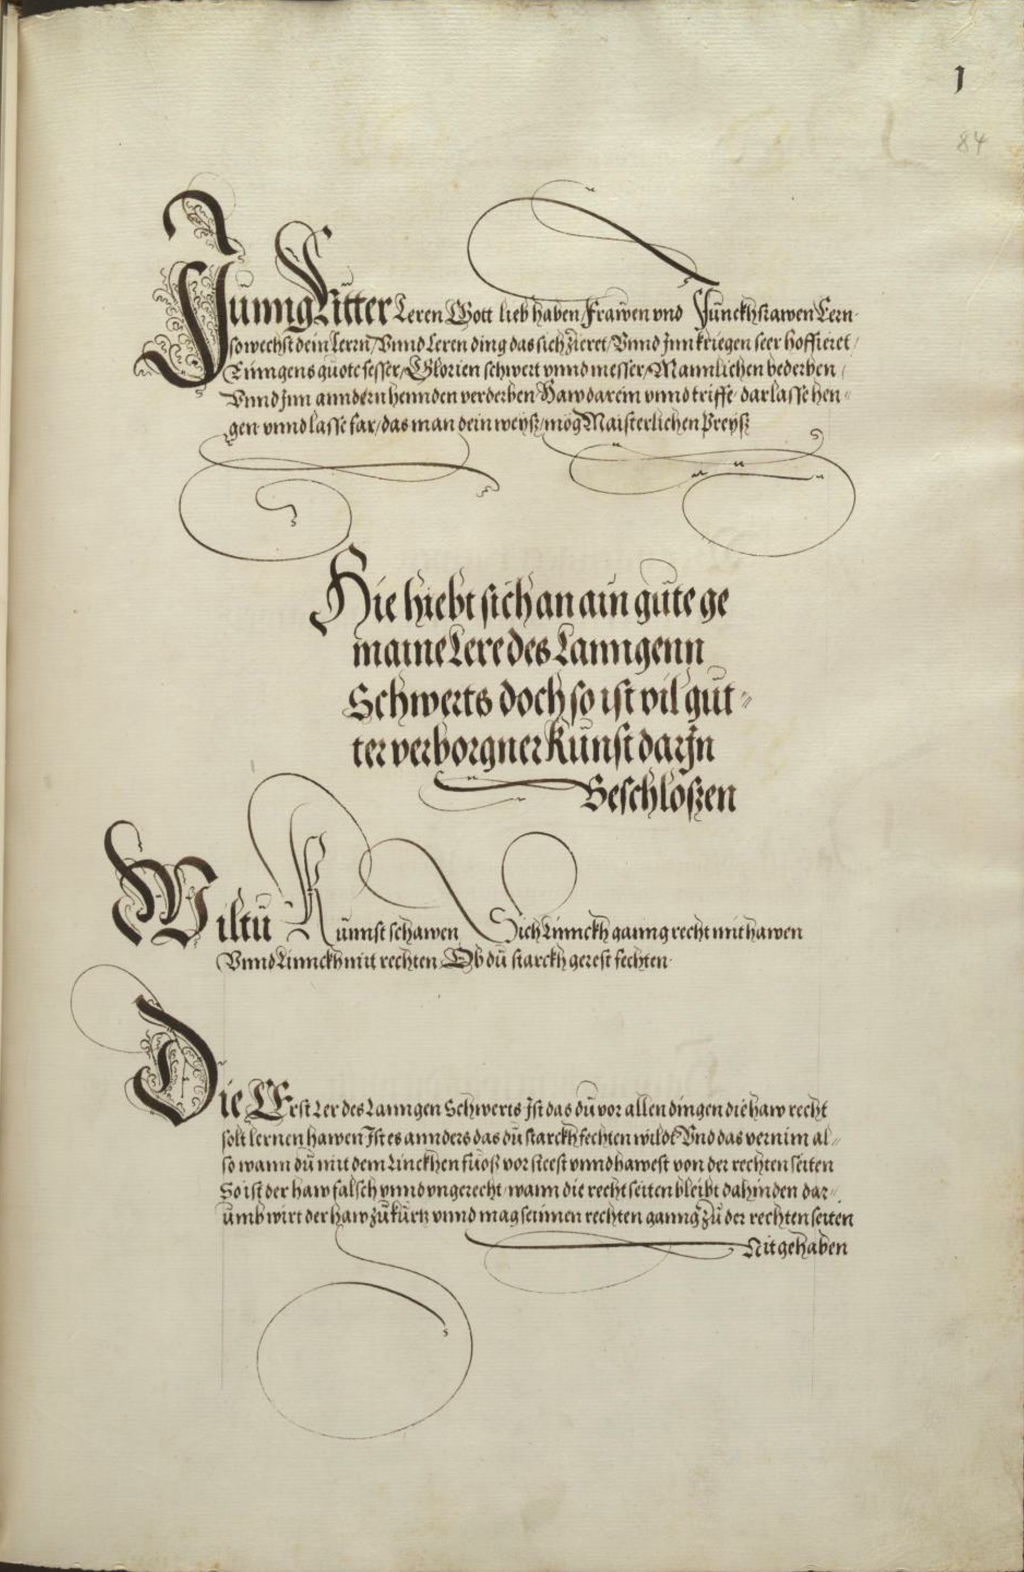 1
84
Junng Ritter Leren Gott lieb haben / Frawen vnd Junckhfrawen Lern
so wechst dein Lernn / Vnnd Leren ding das sich Zieret / Vnnd Jnn kriegen seer hoffieret /
Rinngens guote fesser / Glorien schwert vnnd messer / Mannlichen bederben /
Vnnd Jnn anndern hennden verderben Haw darein vnnd triffe dar lasse hen=
gen vnnd lasse far / das man dein weysz / mög Maisterlichen Preysz
Hie hiebt sich an ain gute ge
maine Lere des Lanngenn
Schwerts doch so ist vil gut=
ter verborgner Kunst darJn
Beschloszen
Wiltu Kunnst schawen Sich Linnckh ganng recht mit hawen
Vnnd Linnckh mit rechten Ob du starckh gerest fechten
Die Erst Ler des Lanngen Schwerts Jst das du vor allen dingen die haw recht
solt lernen hawen Jst es annders das du starckh fechten wildt Vnd das vernim al=
so wann du mit dem Linckhen fuosz vor steest vnnd hawest von der rechten seiten
So ist der haw falsch vnnd vngerecht / wann die recht seiten bleibt dahinden dar=
umb wirt der haw zu kurtz vnnd mag seinnen rechten ganng zu der rechten seiten
Nit gehaben